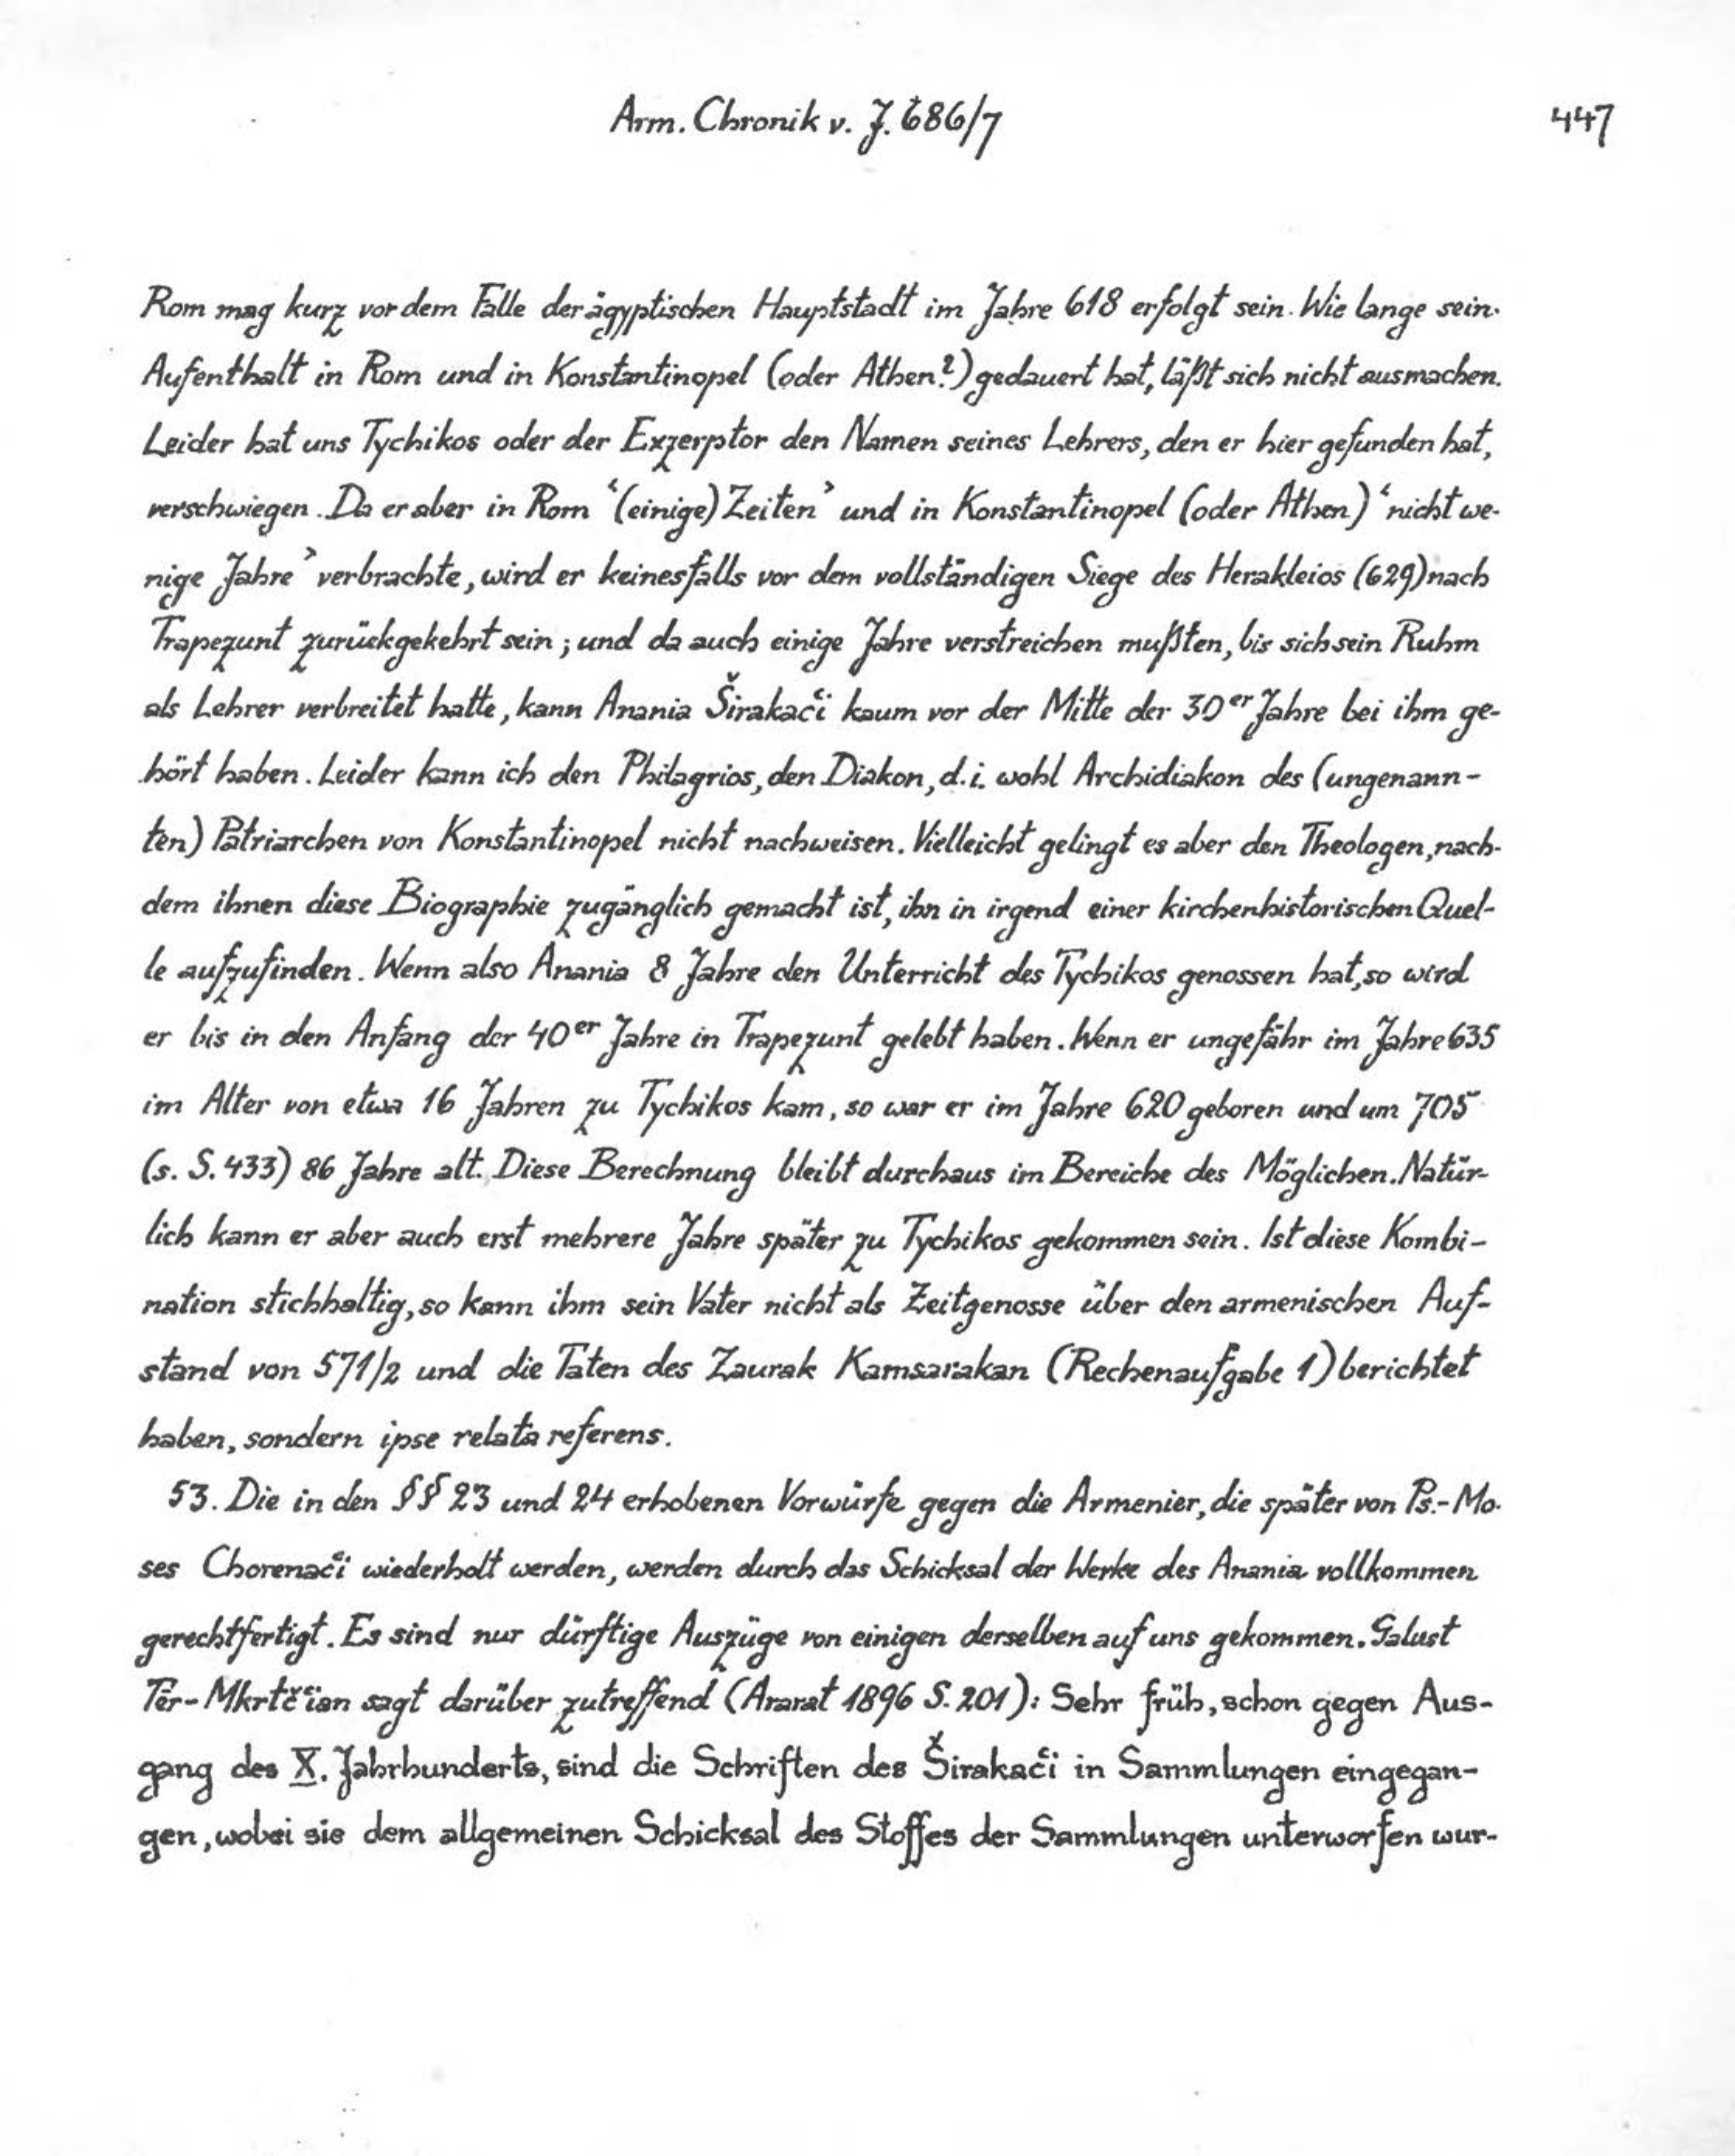 Arm. Chronik v. J. 686/7
447
Rom mag kurz vor dem Falle der ägyptischen Hauptstadt im Jahre 618 erfolgt sein. Wie lange sein
Aufenthalt in Rom und in Konstantinopel (oder Athen?) gedauert hat, läßt sich nicht ausmachen.
Leider hat uns Tychikos oder der Exzerptor den Namen seines Lehrers, den er hier gefunden hat,
verschwiegen. Da er aber in Rom ‘(einige) Zeiten’ und in Konstantinopel (oder Athen) ‘nicht we-
nige Jahre’ verbrachte, wird er keinesfalls vor dem vollständigen Siege des Herakleios (629) nach
Trapezunt zurückgekehrt sein; und da auch einige Jahre verstreichen mußten, bis sich sein Ruhm
als Lehrer verbreitet hatte, kann Anania Širakac̔i kaum vor der Mitte der 30er Jahre bei ihm ge-
hört haben. Leider kann ich den Philagrios, den Diakon, d. i. wohl Archidiakon des (ungenann-
ten) Patriarchen von Konstantinopel nicht nachweisen. Vielleicht gelingt es aber den Theologen, nach-
dem ihnen diese Biographie zugänglich gemacht ist, ihn in irgend einer kirchenhistorischen Quel-
le aufzufinden. Wenn also Anania 8 Jahre den Unterricht des Tychikos genossen hat, so wird
er bis in den Anfang der 40er Jahre in Trapezunt gelebt haben. Wenn er ungefähr im Jahre 635
im Alter von etwa 16 Jahren zu Tychikos kam, so war er im Jahre 620 geboren und um 705
(s. S. 433) 86 Jahre alt. Diese Berechnung bleibt durchaus im Bereiche des Möglichen. Natür-
lich kann er aber auch erst mehrere Jahre später zu Tychikos gekommen sein. Ist diese Kombi-
nation stichhaltig, so kann ihm sein Vater nicht als Zeitgenosse über den armenischen Auf-
stand von 571/2 und die Taten des Zaurak Kamsarakan (Rechenaufgabe 1) berichtet
haben, sondern ipse relata referens.
53. Die in den §§ 23 und 24 erhobenen Vorwürfe gegen die Armenier, die später von Ps.-Mo-
ses Chorenac̔i wiederholt werden, werden durch das Schicksal der Werke des Anania vollkommen
gerechtfertigt. Es sind nur dürftige Auszüge von einigen derselben auf uns gekommen. Galust
Tēr-Mkrtč̔ian sagt darüber zutreffend (Ararat 1896 S. 201): Sehr früh, schon gegen Aus-
gang des X. Jahrhunderts, sind die Schriften des Širakac̔i in Sammlungen eingegan-
gen, wobei sie dem allgemeinen Schicksal des Stoffes der Sammlungen unterworfen wur-